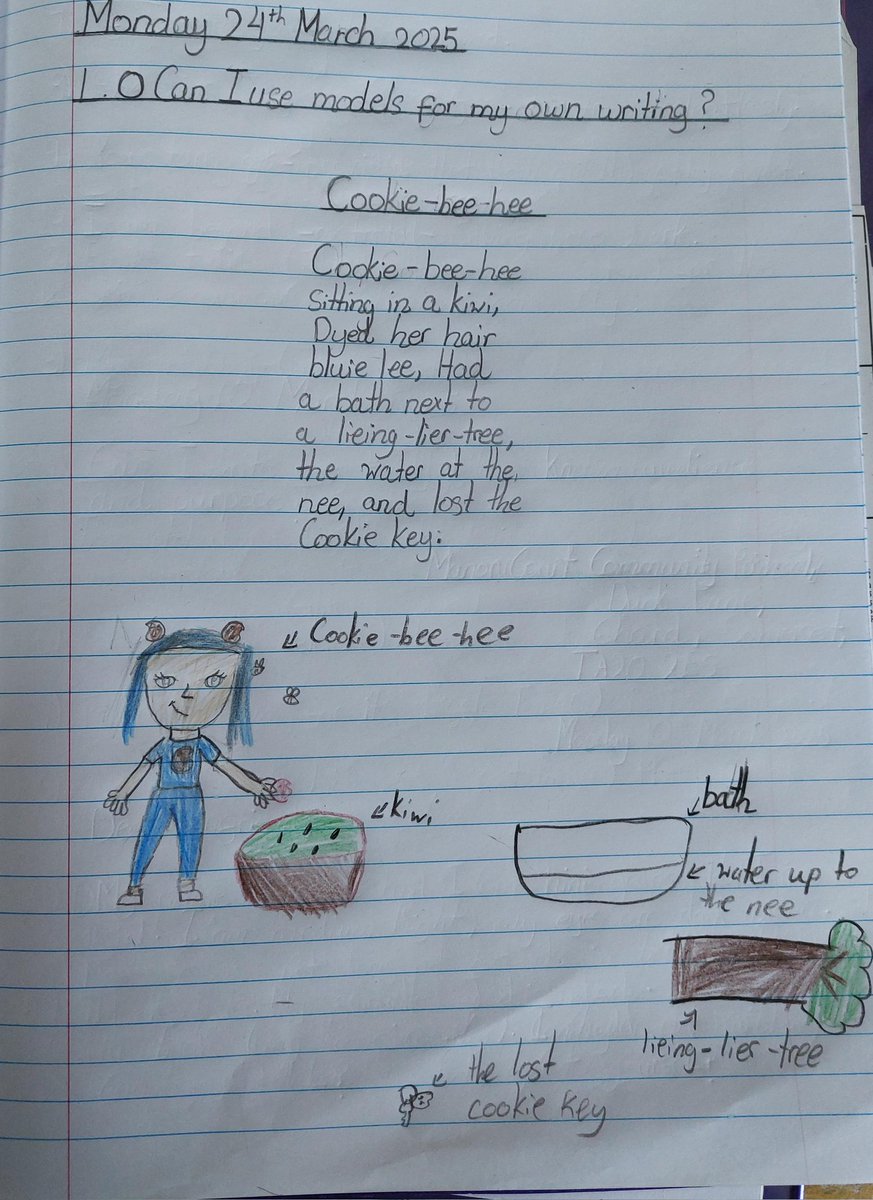 Monday 24th March 2025
L.O Can I use models for my own writing?
Cookie-bee-hee
Cookie-bee-hee
Sitting in a kiwi,
Dyed her hair
bluie lee, Had
a bath next to
a lieing-lier-tree,
the water at the
nee, and lost the
Cookie key.
Cookie-bee-hee
kiwi
bath
water up to
the nee
lieing-lier-tree
the lost
cookie key